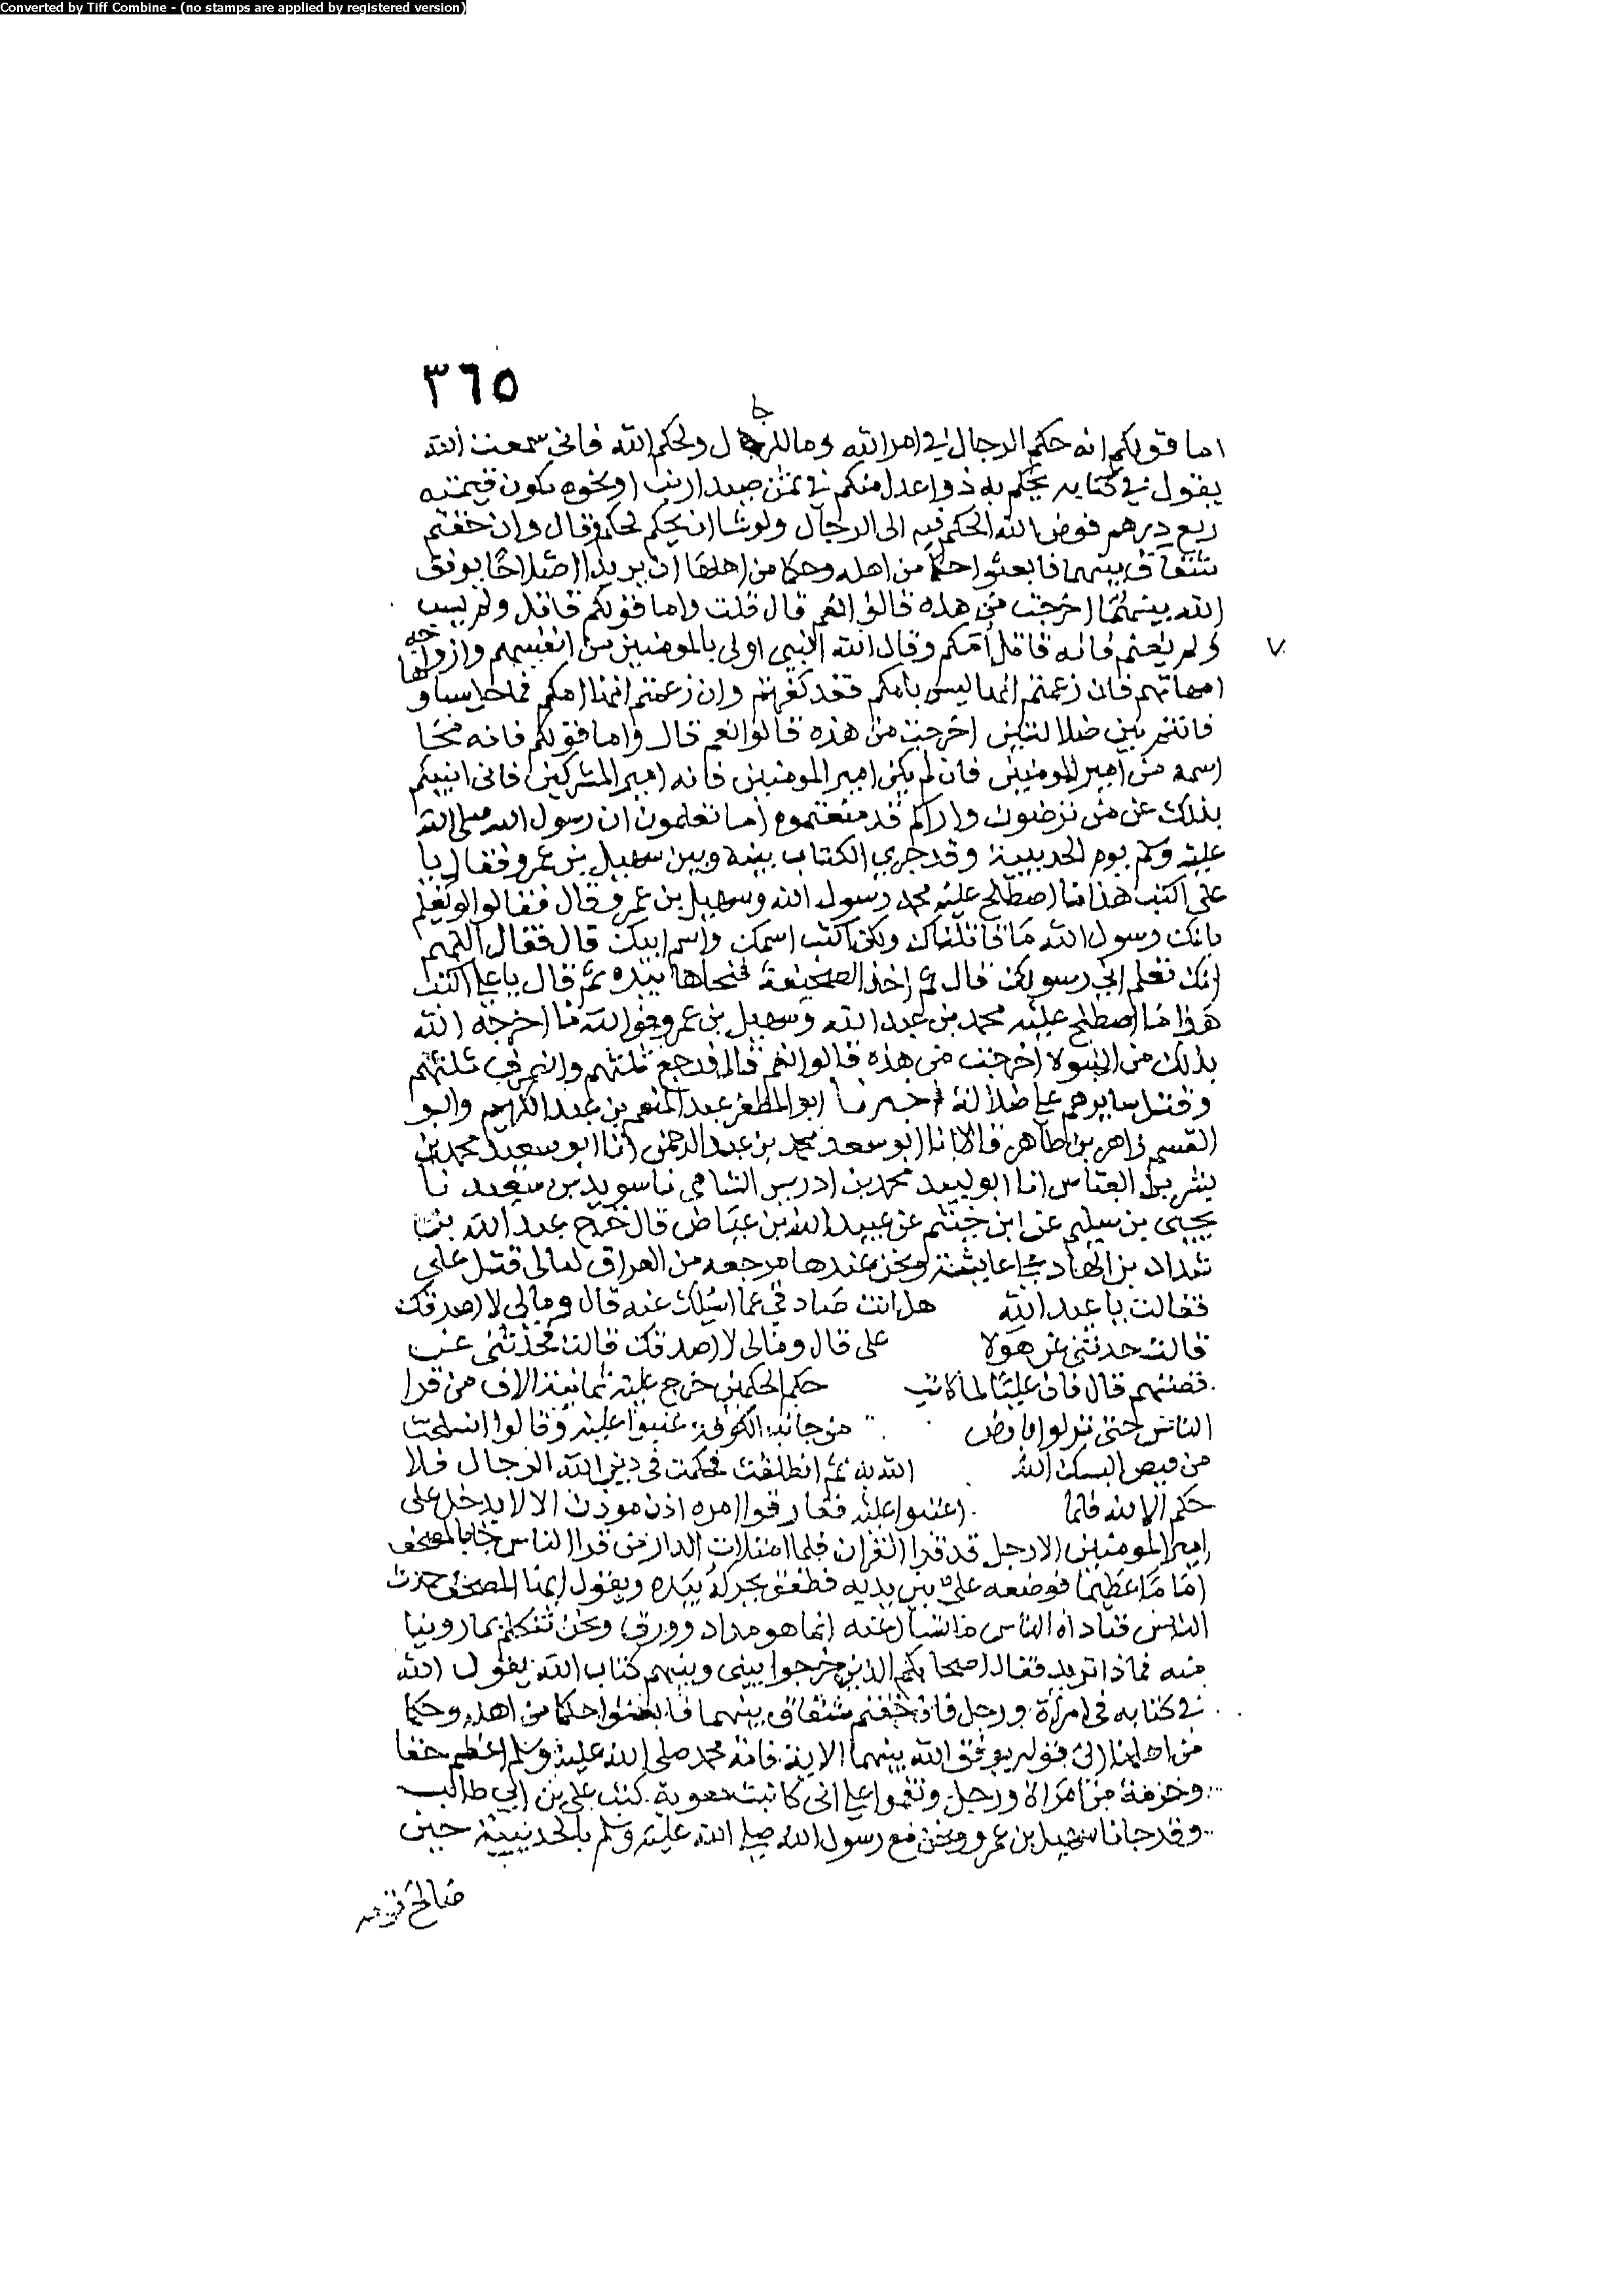 Converted by Tiff Combine - (no stamps are applied by registered version)
٣٦٥
اما قولكم انه حكم الرجال في امر الله وما للرجال ولحكم الله فاني سمعت الله
يقول في كتابه يحكم به ذوا عدل منكم في ثمن صيد ارنب او نحوه تكون قيمته
ربع درهم فوض الله الحكم فيه الى الرجال ولو شا ان يحكم لحكم وقال وان خفتم
شقاق بينهما فابعثوا حكما من اهله وحكما من اهلها ان يريدا اصلاحا يوفق
الله بينهما اخرجت من هذه قالوا نعم قال قلت واما قولكم قاتل ولم يسب
ولم يغنم فانه قاتل امكم وقال الله النبي اولى بالمومنين من انفسهم وازواجه
امهاتهم فان زعمتم انها ليس بامكم فقد كفرتم وان زعمتم انها امكم فما حل سباوها
فانتم بين ضلالتين اخرجت من هذه قالوا نعم قال واما قولكم فانه محا
اسمه من امير المومنين فان لم يكن امير المومنين فانه امير المشركين فاني انبيكم
بذلك عن من ترضون واراكم قد سمعتموه اما تعلمون ان رسول الله صلى الله
عليه وسلم يوم الحديبية وقد جرى الكتاب بينه وبين سهيل بن عمرو فقال يا
علي اكتب هذا ما اصطلح عليه محمد رسول الله وسهيل بن عمرو قال فقالوا لو نعلم
بانك رسول الله ما قاتلناك ولكن اكتب اسمك واسم ابيك قال فقال اللهم
انك تعلم اني رسولك قال ثم اخذ الصحيفة فمحاها بيده ثم قال يا علي اكتب
هذا ما اصطلح عليه محمد بن عبد الله وسهيل بن عمرو فوالله ما اخرجه الله
بذلك من النبوة اخرجت من هذه قالوا نعم قال فرجع ثلثهم وانصرف ثلثهم
وقتل سايرهم على ضلالة اخبرنا ابو المظفر عبد المنعم بن عبد الكريم وابو
القسم زاهر بن طاهر قالا انا ابو سعد محمد بن عبد الرحمن انا ابو سعيد محمد بن
بشر بن العباس انا ابو لبيد محمد بن ادريس الشامي نا سويد بن سعيد نا
يحيى بن سليم عن ابن خثيم عن عبيد الله بن عياض قال خرج عبد الله بن
شداد بن الهاد على عايشة ونحن عندها مرجعه من العراق ليالي قتل علي
فقالت يا عبد الله هل انت صادقي عما اسلك عنه قال ومالي لا اصدقك
قالت حدثني عن هولا علي قال ومالي لا اصدقك قالت فحدثني عن
قصتهم قال فان عليا لما كاتب حكم الحكمين خرج عليه ثمانية الاف من قرا
الناس حتى نزلوا بارض من جانب الكوفة عتبوا عليه وقالوا انسلخت
من قميص البسك الله الله به ثم انطلقت فحكمت في دين الله الرجال فلا
حكم الا لله فلما اعتبوا عليه ففارقوا امره اذن موذن الا لا يدخل على
امير المومنين الا رجل قد قرا القران فلما امتلات الدار من قرا الناس جا بالمصحف
اماما عظيما فوضعه علي بين يديه فطفق يحركه بيده ويقول ايها المصحف حدث
الناس فناداه الناس ما تسال عنه انما هو مداد وورق ونحن نتكلم بما روينا
منه فماذا تريد فقال اصحابكم الذين خرجوا بيني وبينهم كتاب الله يقول الله
في كتابه في امراة ورجل فان خفتم شقاق بينهما فابعثوا حكما من اهله وحكما
من اهلها الى قوله يوفق الله بينهما الاية فامة محمد صلى الله عليه وسلم اعظم حقا
وحرمة من امراة ورجل ونقموا علي اني كاتبت معوية كتب علي بن ابي طالب
وقد جانا سهيل بن عمرو ونحن مع رسول الله صلى الله عليه وسلم بالحديبية حين
صالح قومه